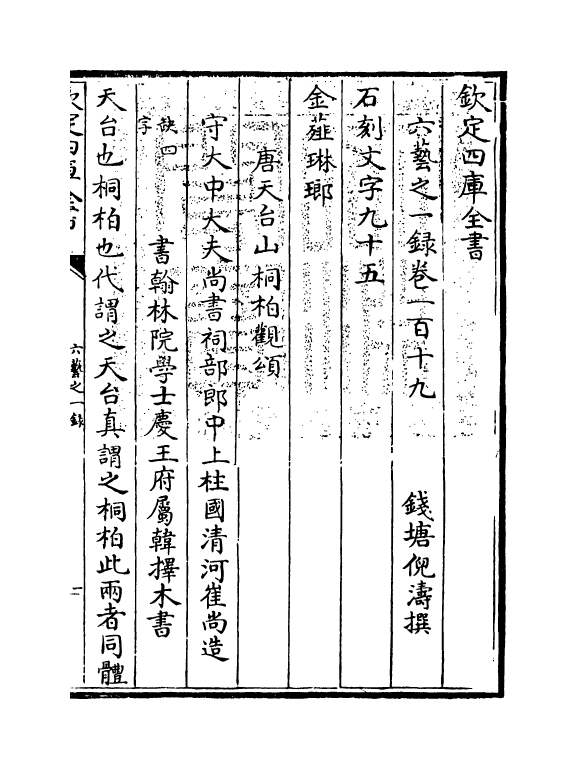 欽定四庫全書
六藝之一録卷二百十九
錢塘倪濤撰
石刻文字九十五
金薤琳瑯
唐天台山桐柏觀頌
守大中大夫尚書祠部郎中上柱國清河崔尚造
缺四字
書翰林院學士慶王府屬韓擇木書
天台也桐柏也代謂之天台真謂之桐柏此兩者同體
欽定四庫全書
六藝之一録